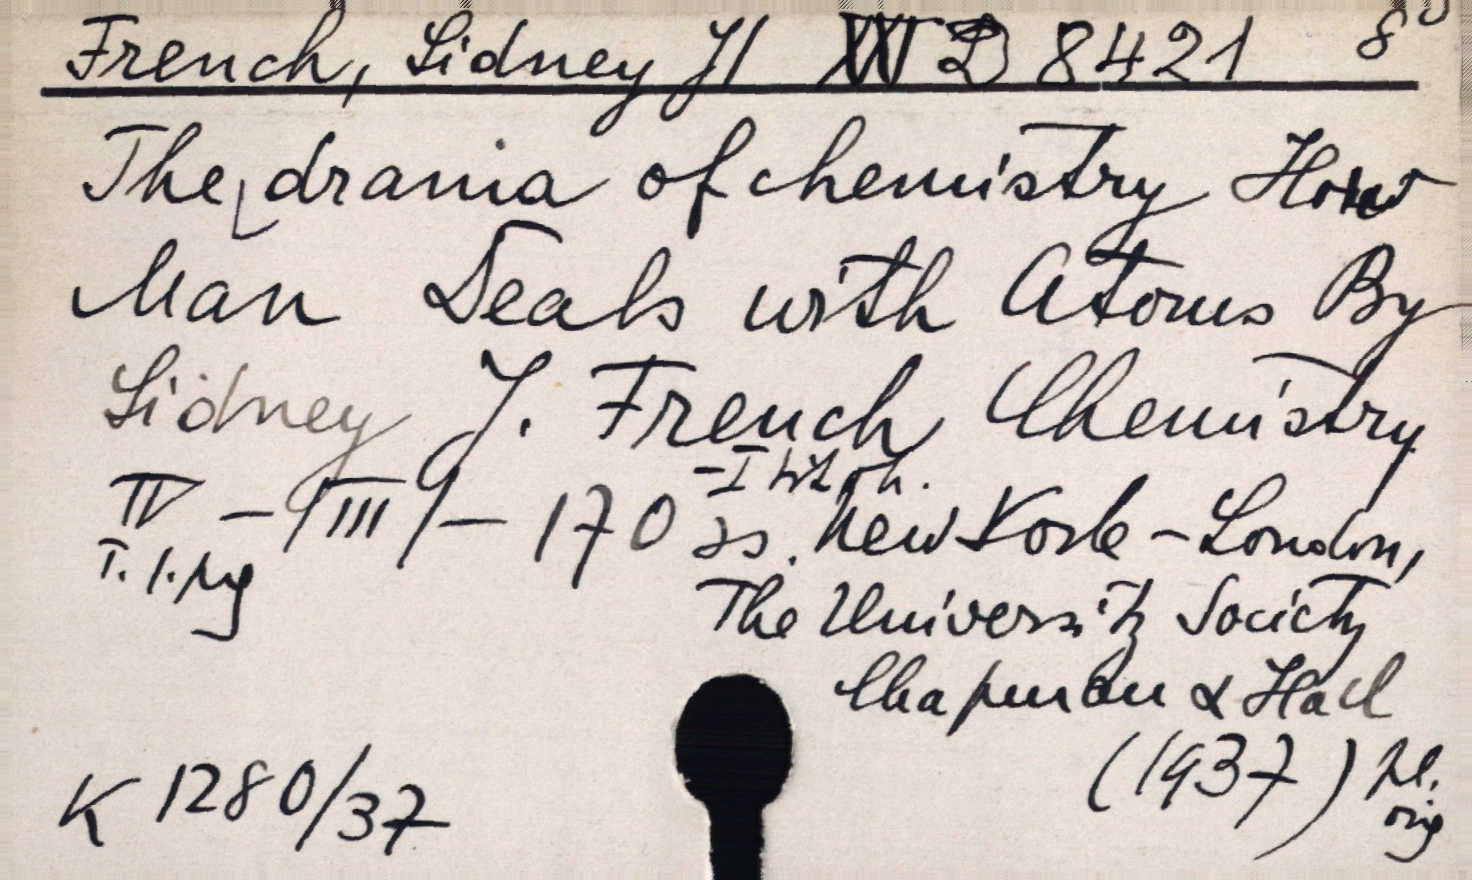 French, Sidney J XVI D 8421 8°
The drama of chemistry How
Man Deals with Atoms By
Sidney J. French Chemistry
IV – (III) – 170
ss. New York – London,
The University Society
Chapman & Hall
(1937) pl.
orig
K 1280/37